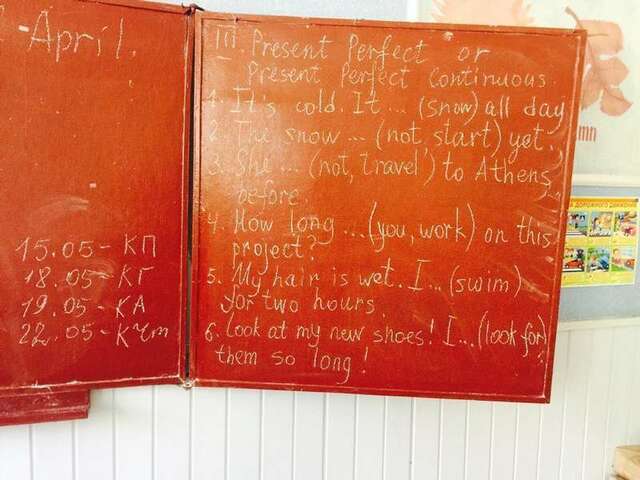 April.
15.05-КП
18.05-КГ
19.05-КА
22.05-КЧт
III. Present Perfect or
Present Perfect Continuous.
1. It's cold. It ... (snow) all day
2. The snow ... (not, start) yet.
3. She ... (not, travel) to Athens
before.
4. How long ... (you, work) on this
project?
5. My hair is wet. I ... (swim)
for two hours.
6. Look at my new shoes! I ... (look for)
them so long!